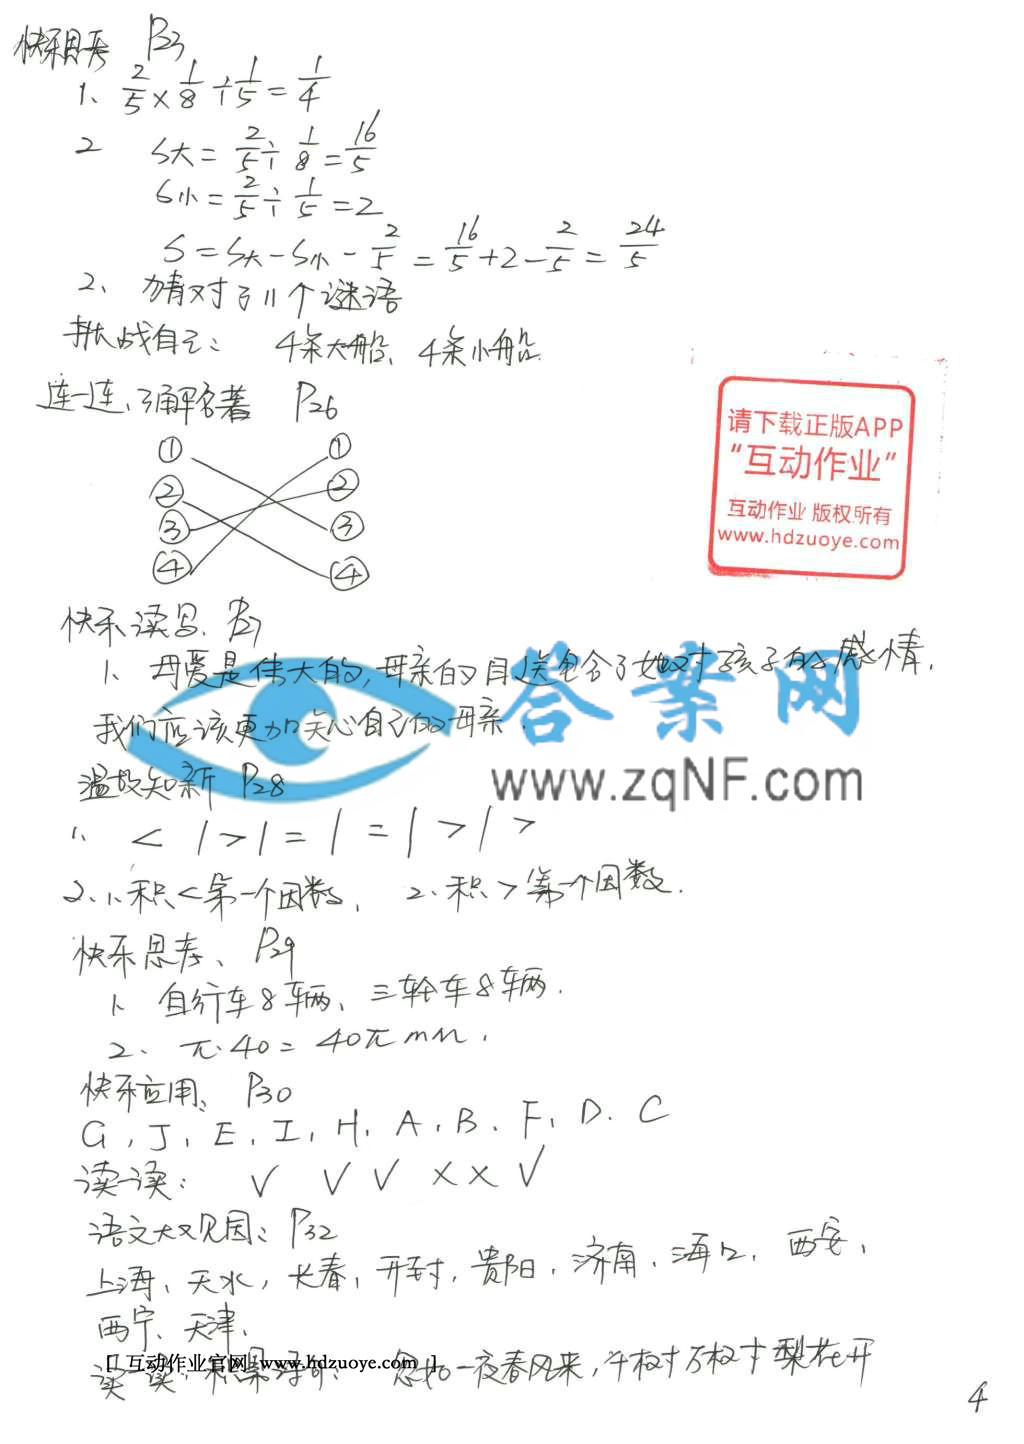 快乐思考 P23
1、 2/5 × 1/8 ÷ 1/5 = 1/4
2 S大 = 2/5 ÷ 1/8 = 16/5
S小 = 2/5 ÷ 1/5 = 2
S = S大 - S小 - 2/5 = 16/5 + 2 - 2/5 = 24/5
2、 猜对了11个谜语
挑战自己: 4条大船、4条小船.
连一连、了解名著 P26
① ①
② ②
③ ③
④ ④
请下载正版APP
“互动作业”
互动作业 版权所有
www.hdzuoye.com
快乐读写. P27
1、 母爱是伟大的,母亲的目送包含了她对孩子的感情.
我们应该更加关心自己的母亲.
答案网
www.zqNF.com
温故知新 P28
1、 < | > | = | = | > | >
2、1、积<第一个因数、 2、积>第一个因数.
快乐思考、P29
1、 自行车8辆、三轮车8辆.
2、 π·40 = 40π mm.
快乐应用、P30
G, J, E, I, H, A, B, F, D, C
读一读: √ √ √ × × √
语文大观园: P32
上海, 天水, 长春, 开封, 贵阳, 济南, 海口, 西安,
西宁、天津、
[ 互动作业官网 www.hdzuoye.com ]
读一读 忽如一夜春风来,千树万树梨花开
4